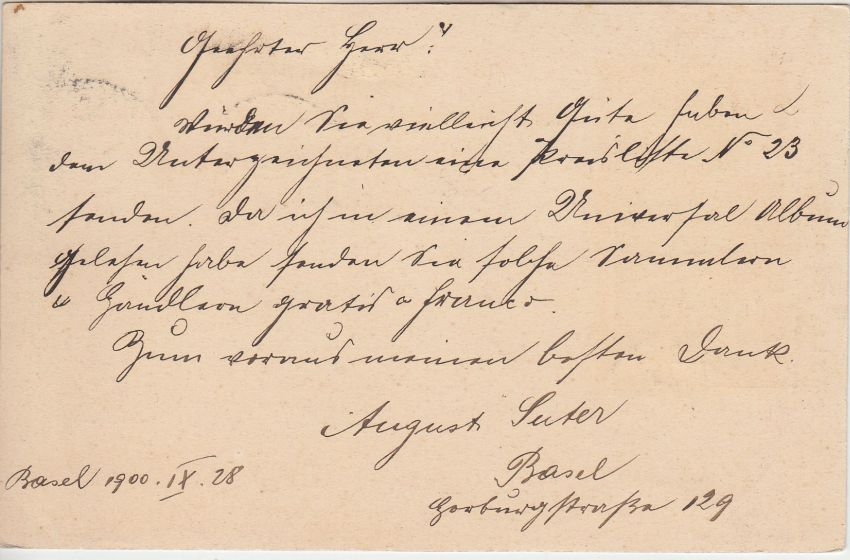 Geehrter Herr!
Würden Sie vielleicht Güte haben
dem Unterzeichneten eine Preisliste No 23
senden. Da ich in einem Universal Album
gelesen habe senden Sie solche Sammlern
u Händlern gratis u franco.
Zum voraus meinen besten Dank.
August Suter
Basel
Basel 1900. IX. 28
Horburgstraße 129